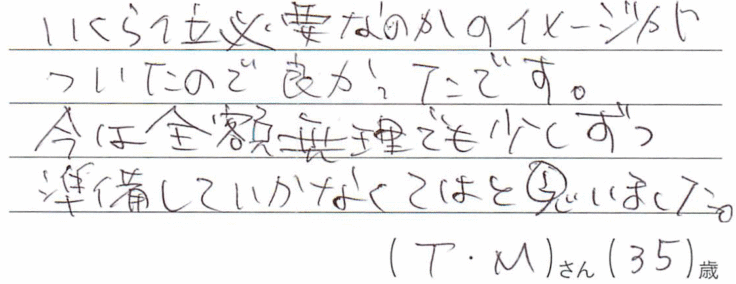 いくら位必要なのかのイメージが
ついたので良かったです。
今は全額無理でも少しずつ
準備していかなくてはと思いました。
(T・M)さん(35)歳